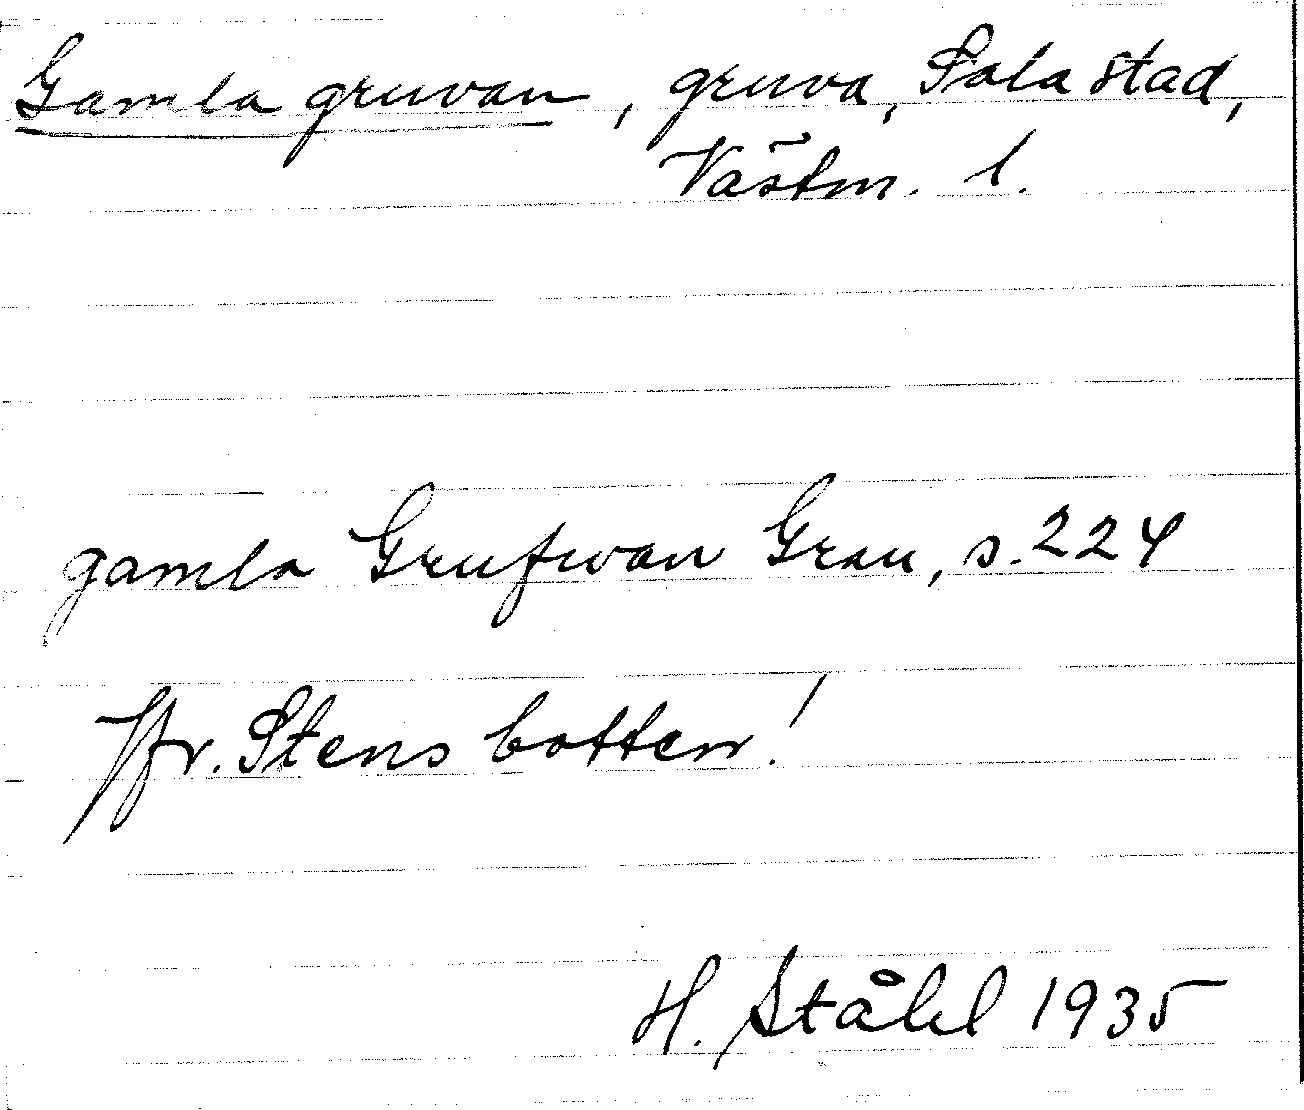 Gamla gruvan, gruva, Sala stad,
Västm. l.
gamla Grufwan Grau, s. 224
Jfr. Stens botten!
H. Ståhl 1935